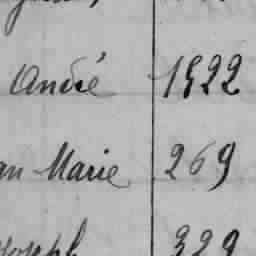 André 1522
an Marie 269
Joseph 329